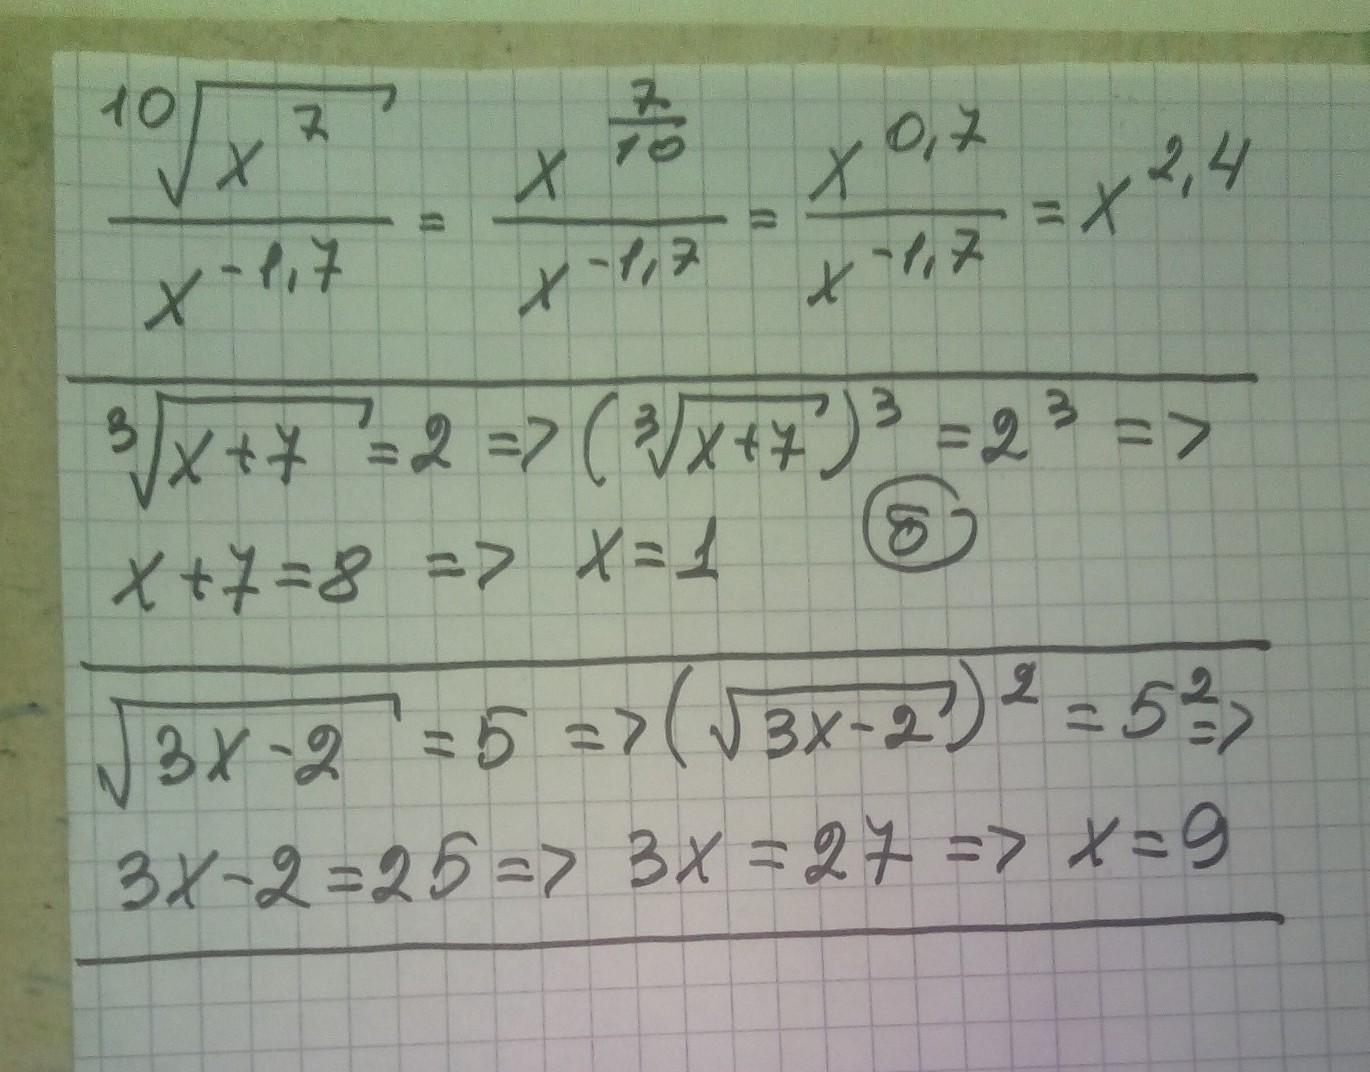 ¹⁰√(x⁷) / x^(-1,7) = x^(7/10) / x^(-1,7) = x^(0,7) / x^(-1,7) = x^(2,4)
³√(x+7) = 2 => (³√(x+7))³ = 2³ =>
x+7=8 => x=1 б
√(3x-2) = 5 => (√(3x-2))² = 5² =>
3x-2=25 => 3x=27 => x=9